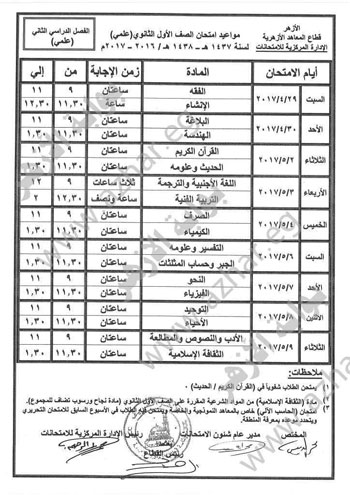 الأزهر
قطاع المعاهد الأزهرية
الإدارة المركزية للامتحانات
مواعيد امتحان الصف الأول الثانوي (علمي)
لسنة ١٤٣٧هـ - ١٤٣٨هـ / ٢٠١٦ - ٢٠١٧م
الفصل الدراسي الثاني
(علمي)
أيام الامتحان المادة زمن الإجابة من إلي
السبت ٢٠١٧/٤/٢٩ الفقه ساعتان ٩ ١١
الإنشاء ساعة ١١,٣٠ ١٢,٣٠
الأحد ٢٠١٧/٤/٣٠ البلاغة ساعتان ٩ ١١
الهندسة ساعتان ١١,٣٠ ١,٣٠
الثلاثاء ٢٠١٧/٥/٢ القرآن الكريم ساعتان ٩ ١١
الحديث وعلومه ساعتان ١١,٣٠ ١,٣٠
الأربعاء ٢٠١٧/٥/٣ اللغة الأجنبية والترجمة ثلاث ساعات ٩ ١٢
التربية الفنية ساعة ونصف ١٢,٣٠ ٢
الخميس ٢٠١٧/٥/٤ الصرف ساعتان ٩ ١١
الكيمياء ساعتان ١١,٣٠ ١,٣٠
السبت ٢٠١٧/٥/٦ التفسير وعلومه ساعتان ٩ ١١
الجبر وحساب المثلثات ساعتان ١١,٣٠ ١,٣٠
الاثنين ٢٠١٧/٥/٨ النحو ساعتان ٩ ١١
الفيزياء ساعتان ١١,٣٠ ١,٣٠
التوحيد ساعتان ٩ ١١
الأحياء ساعتان ١١,٣٠ ١,٣٠
الثلاثاء ٢٠١٧/٥/٩ الأدب والنصوص والمطالعة ساعتان ٩ ١١
الثقافة الإسلامية ساعتان ١١,٣٠ ١,٣٠
ملاحظات:
١) يمتحن الطلاب شفوياً في (القرآن الكريم / الحديث).
٢) مادة (الثقافة الإسلامية) من المواد الشرعية المقررة على الصف الأول الثانوي (مادة نجاح ورسوب تضاف للمجموع).
٣) امتحان (الحاسب الآلي) خاص بالمعاهد النموذجية والخاصة ويمتحن فيه الطلاب في الأسبوع السابق للامتحان التحريري
ويتحدد موعده بمعرفة المنطقة.
المختص
مدير عام شئون الامتحانات
رئيس الإدارة المركزية للامتحانات
رئيس القطاع
بوابة الأزهر
azhar.eg